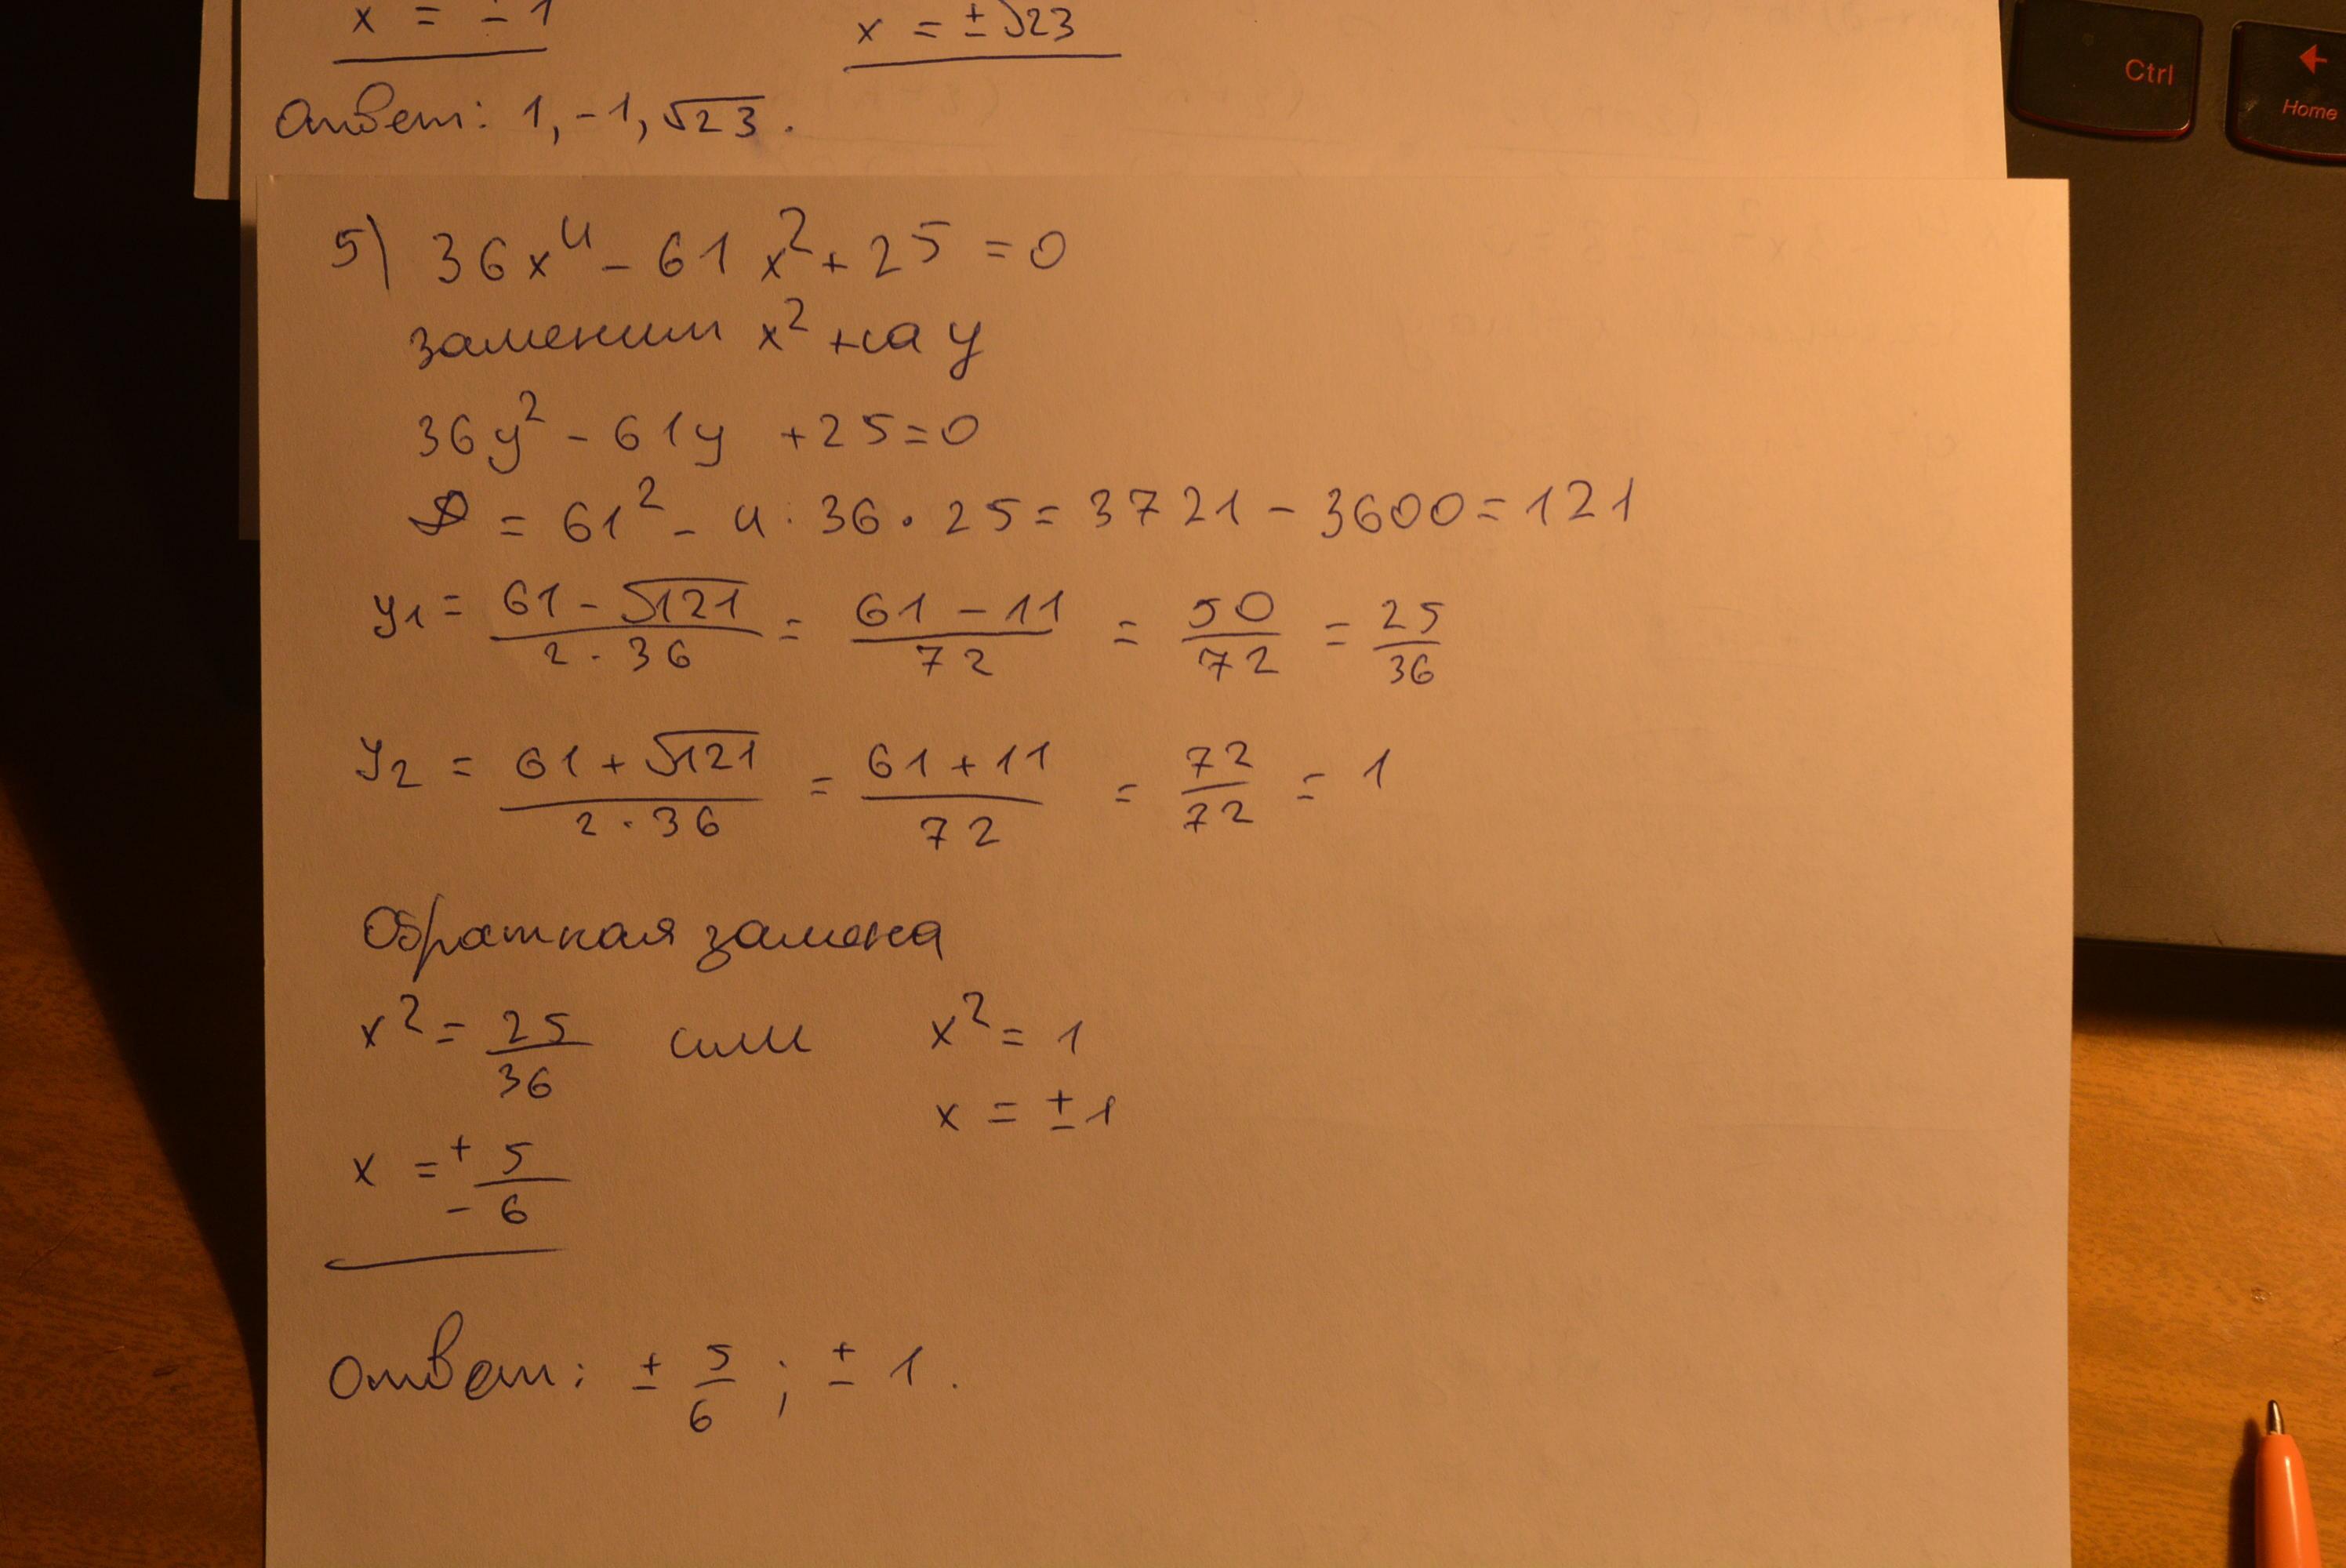 x = ± 1
x = ±√23
Ответ: 1, -1, √23.
Ctrl
Home
5) 36x⁴ - 61x² + 25 = 0
заменим x² на y
36y² - 61y + 25 = 0
D = 61² - 4 · 36 · 25 = 3721 - 3600 = 121
y₁ = (61 - √121)/(2 · 36) = (61 - 11)/72 = 50/72 = 25/36
y₂ = (61 + √121)/(2 · 36) = (61 + 11)/72 = 72/72 = 1
Обратная замена
x² = 25/36 или x² = 1
x = ± 5/6
x = ± 1
Ответ: ± 5/6 ; ± 1.